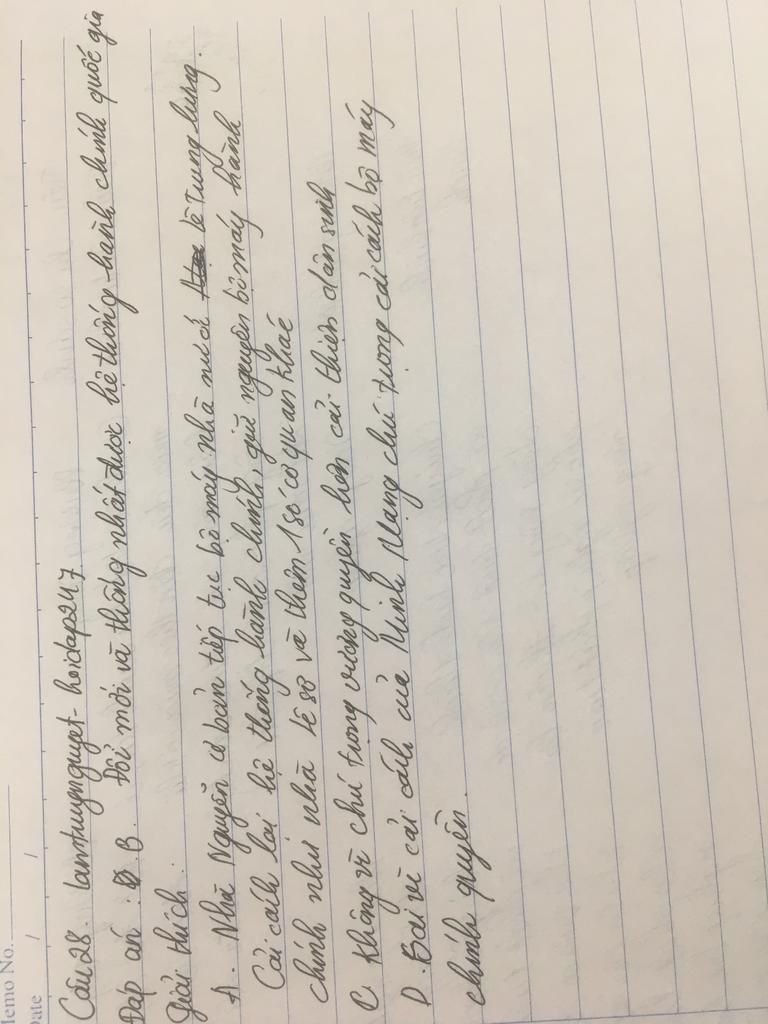 Memo No.
Date / /
Câu 28. lamtuyngnguyet - hoidap247
Đáp án: B. Đổi mới và thống nhất được hệ thống hành chính quốc gia
Giải thích:
A. Nhà Nguyễn cơ bản tiếp tục bộ máy nhà nước Lê Trung hưng.
Cải cách lại hệ thống hành chính, giữ nguyên bộ máy hành
chính như nhà Lê sơ và thêm 1 số cơ quan khác
C. Không vì chú trọng vương quyền hơn cải thiện dân sinh
D. Sai vì cải cách của Minh Mạng chú trọng cải cách bộ máy
chính quyền.